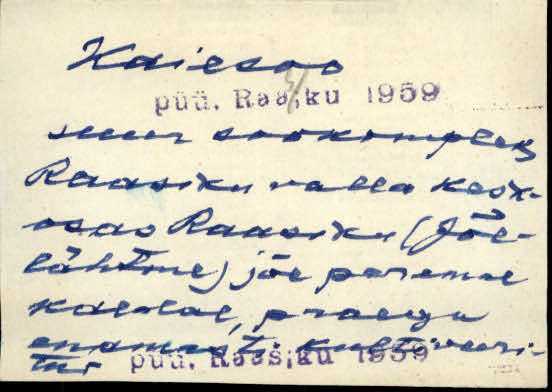 Kaiesoo
püü. Rass;ku 1959
suur sookompleks
Raasiku valla kesk-
osas Raasiku (Jõe-
lähtme) jõe paremal
kaldal, praegu
enamasti kultiveeri-
tur
püü. Rass;ku 1959